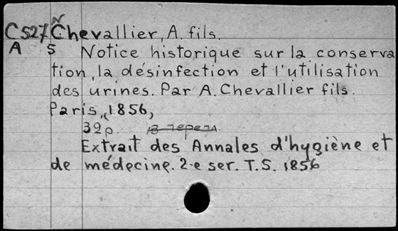 C527 N Chevallier, A. fils.
A 5 Notice historique sur la conserva
tion, la désinfection et l'utilisation
des urines. Par A. Chevallier fils.
Paris, 1856,
32p.
Extrait des Annales d'hygiène et
de médecine. 2.e ser. T.5. 1856